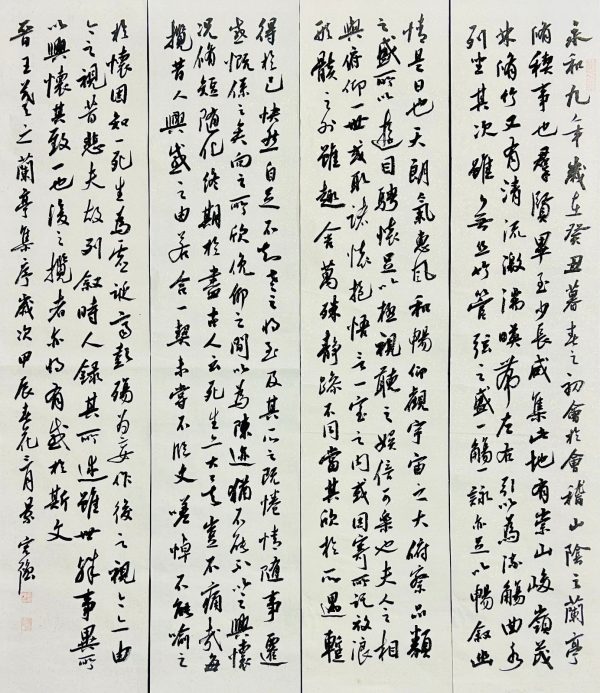 永和九年歲在癸丑暮春之初會於會稽山陰之蘭亭
脩稧事也羣賢畢至少長咸集此地有崇山峻嶺茂
林脩竹又有清流激湍暎帶左右引以為流觴曲水
列坐其次雖無絲竹管弦之盛一觴一詠亦足以暢敘幽
情是日也天朗氣惠風和暢仰觀宇宙之大俯察品類
之盛所以遊目騁懷足以極視聽之娛信可樂也夫人之相
與俯仰一世或取諸懷抱悟言一室之內或因寄所託放浪
形骸之外雖趣舍萬殊靜躁不同當其欣於所遇蹔
得於己快然自足不知老之將至及其所之既惓情隨事遷
感慨係之矣向之所欣俛仰之間以為陳迹猶不能不以之興懷
況脩短隨化終期於盡古人云死生亦大矣豈不痛哉每
攬昔人興感之由若合一契未嘗不臨文嗟悼不能喻之
於懷固知一死生為虛誕齊彭殤為妄作後之視今亦由
今之視昔悲夫故列敘時人錄其所述雖世殊事異所
以興懷其致一也後之攬者亦將有感於斯文
晉王羲之蘭亭集序歲次甲辰春花